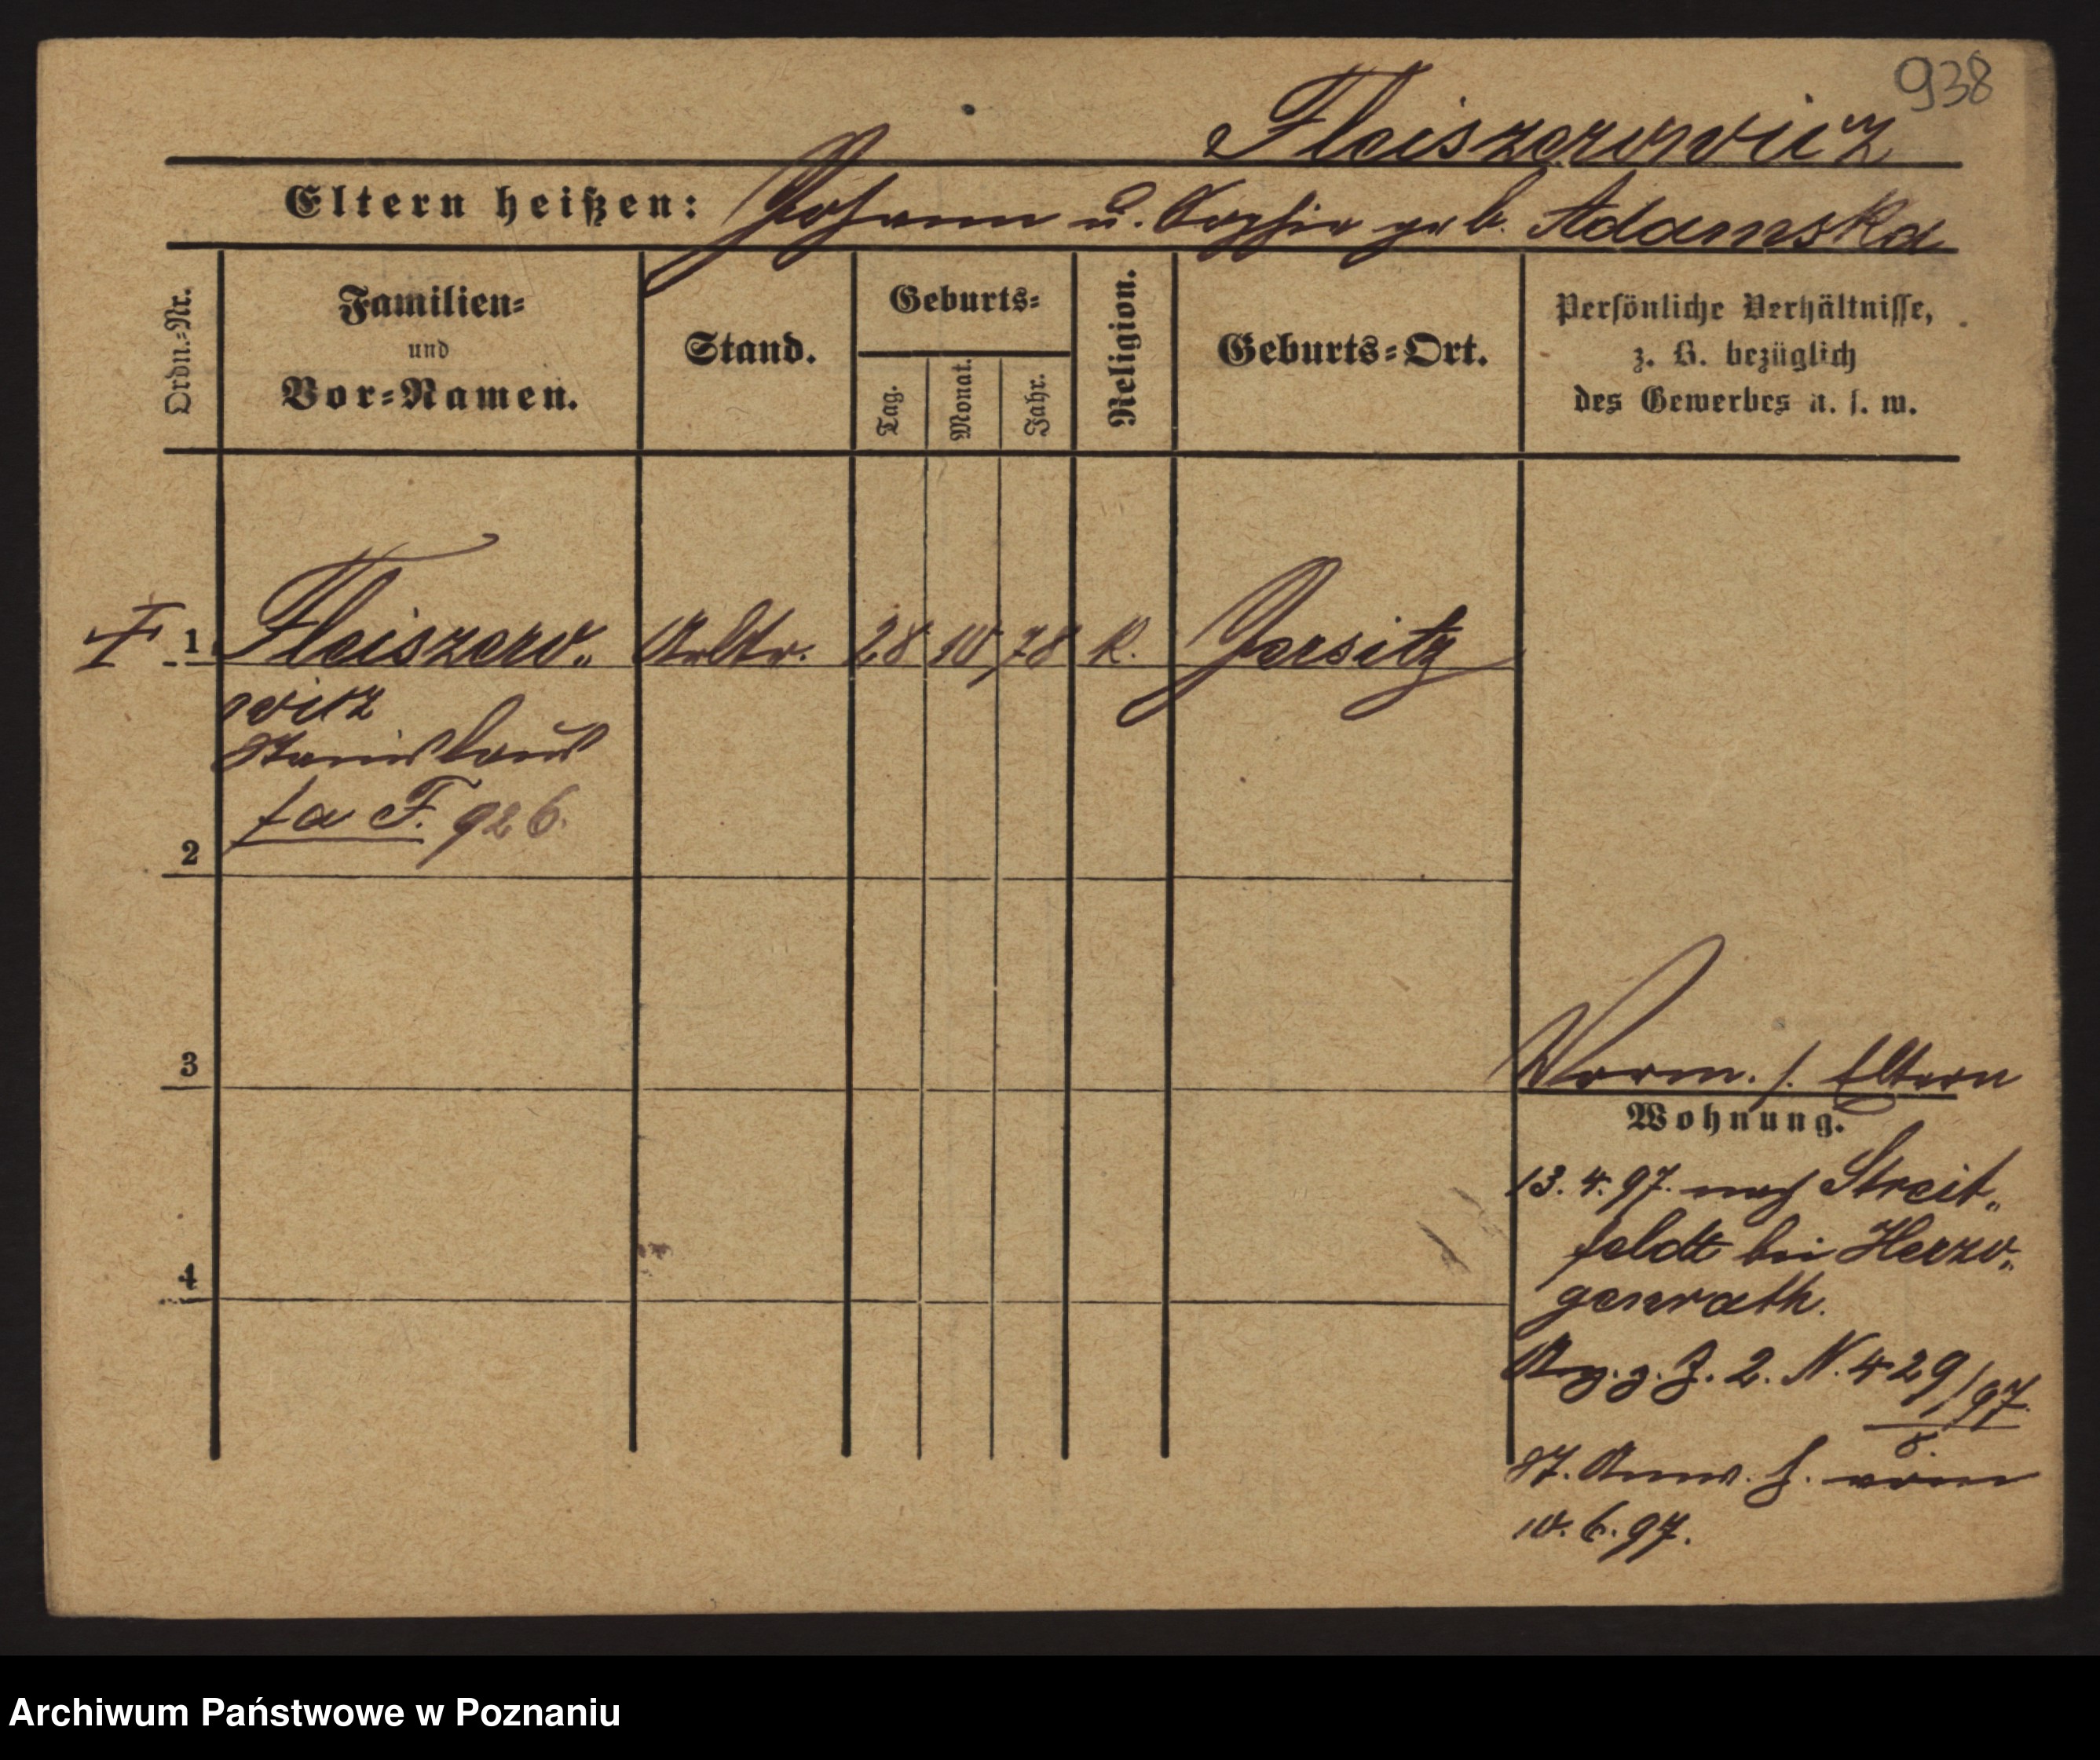 938
Fleiszerowicz
Eltern heißen: Johann u. Sophie geb. Adamska
Ordn.-Nr.
Familien-
und
Vor-Namen.
Stand.
Geburts-
Tag.
Monat.
Jahr.
Religion.
Geburts-Ort.
Persönliche Verhältnisse,
z. B. bezüglich
des Gewerbes u. s. w.
1 Fleiszero- Arbtr. 28 10 78 K. Jersitz
wicz
Stanislaus
fa F. 926.
2
3
4
Vorm. s. Eltern
Wohnung.
13. 4. 97. nach Streit-
feldt bei Herzo-
genrath.
J. 2. N. 429/97.
8.
vom
10. 6. 97.
Archiwum Państwowe w Poznaniu